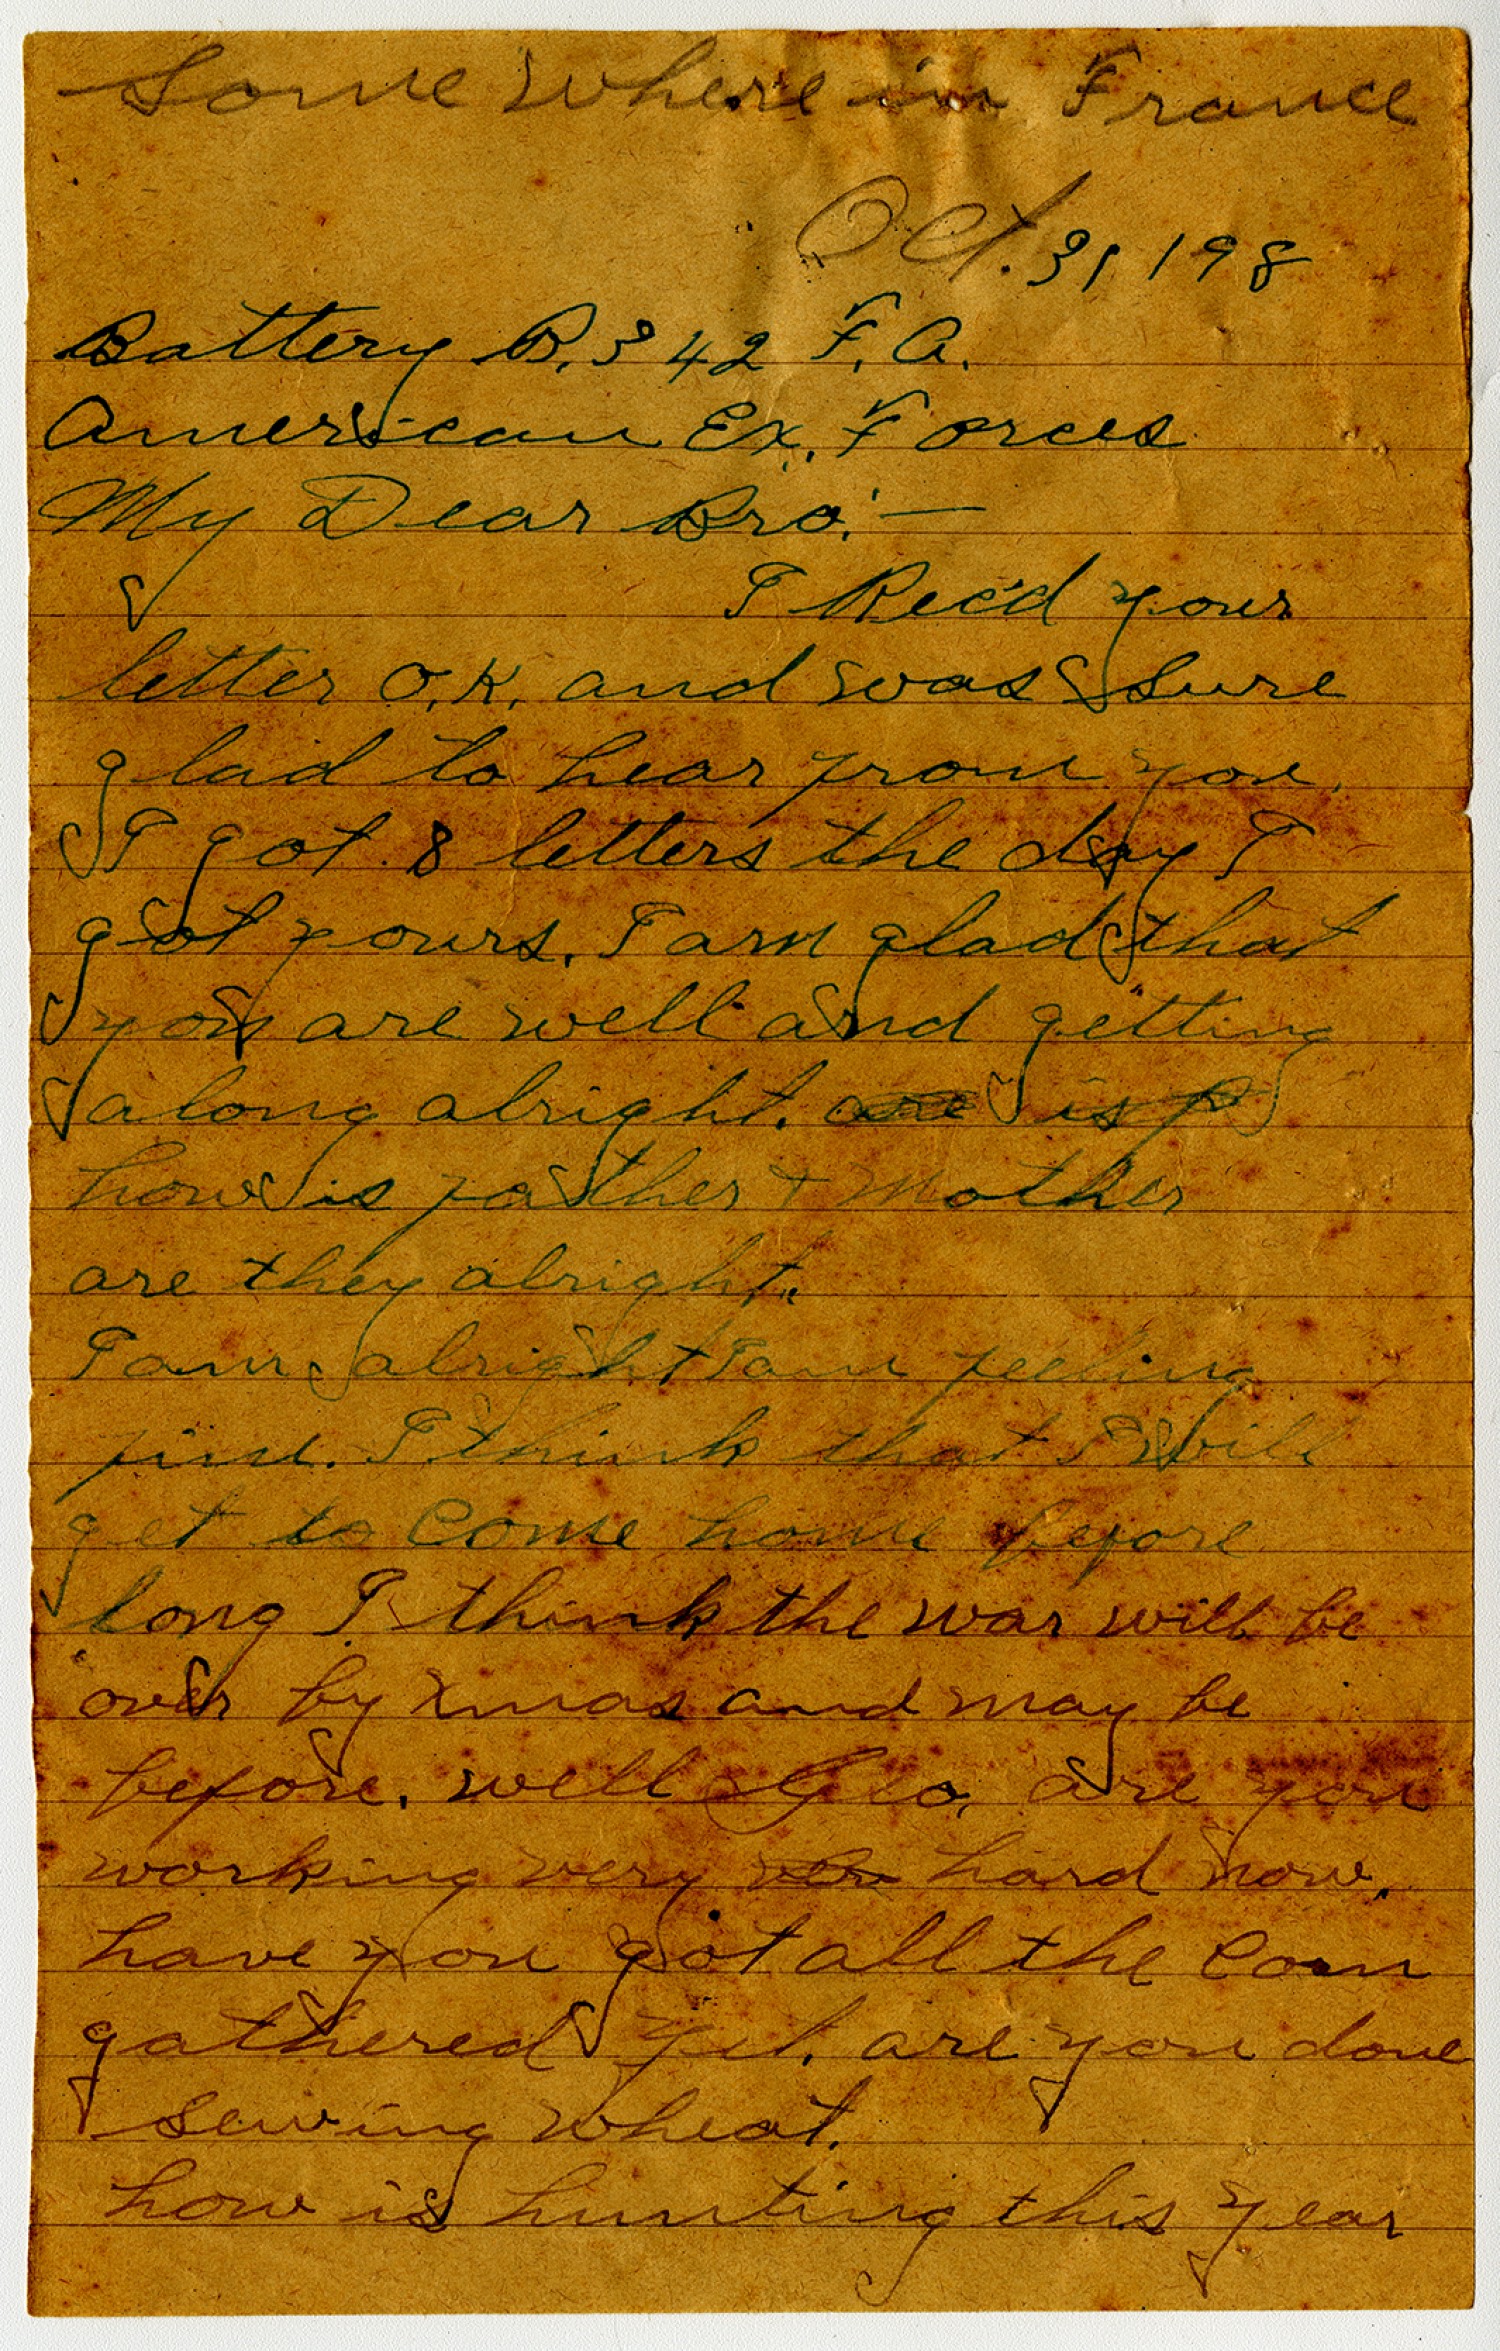 Some Where in France
Oct. 31 198
Battery B. 342 F. A.
American Ex. Forces
My Dear Bro:—
I Rec'd your
letter O.K. and was sure
glad to hear from you.
I got 8 letters the day I
got yours. I am glad that
you are well and getting
along alright. are is
how is father + Mother
are they alright.
I am alright I am feeling
fine. I think that I will
get to Come home before
long I think the war will be
over by Xmas and may be
before. well Geo. are you
working very hard now.
have you got all the Corn
gathered yet. are you done
sewing wheat.
how is hunting this year